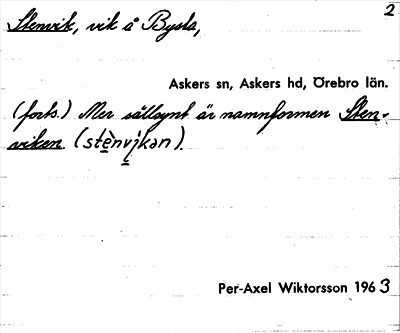 2
Stenvik, vik å Bysta,
Askers sn, Askers hd, Örebro län.
(forts.) Mer sällsynt är namnformen Sten-
viken (stènvikən).
Per-Axel Wiktorsson 1963